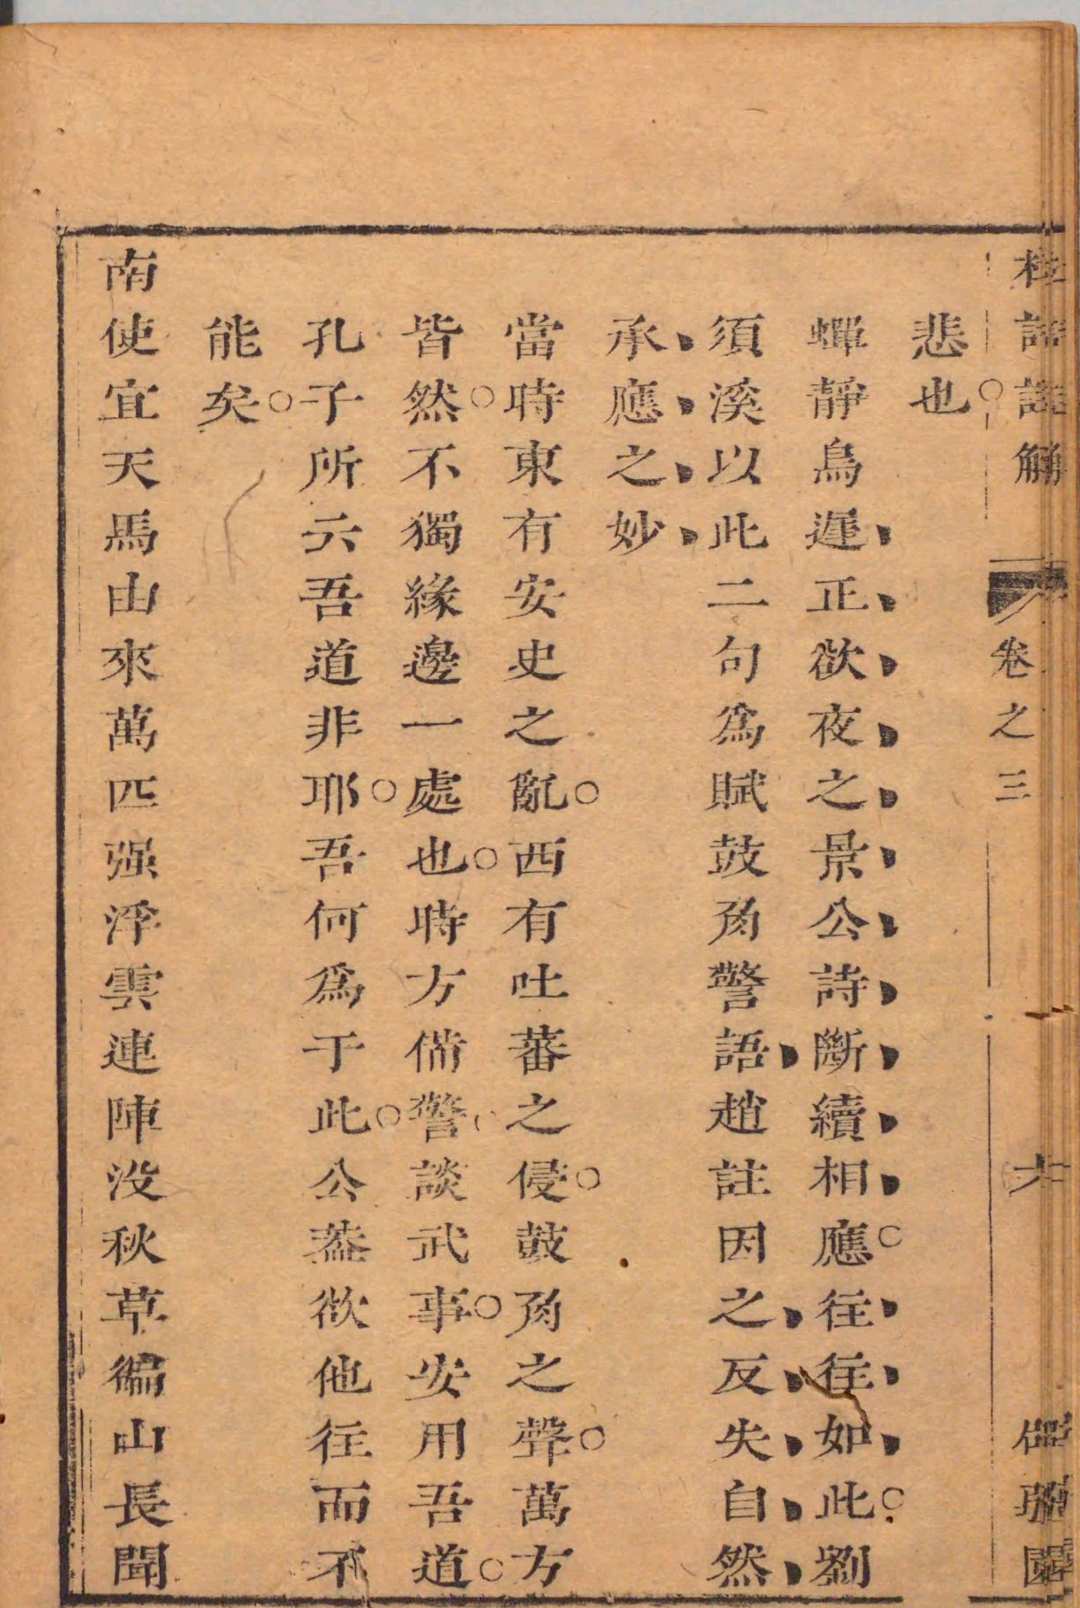 杜詩註解 卷之三 六
悲也
蟬靜鳥遲正欲夜之景公詩斷續相應往往如此劉
須溪以此二句爲賦鼓角警語趙註因之反失自然
承應之妙
當時東有安史之亂西有吐蕃之侵鼓角之聲萬方
皆然不獨緣邊一處也時方備警談武事安用吾道
孔子所云吾道非耶吾何爲于此公葢欲他往而不
能矣
南使宜天馬由來萬匹强浮雲連陣没秋草徧山長聞